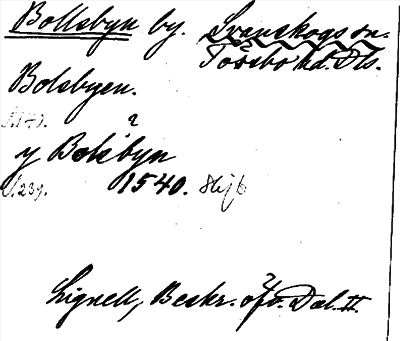 Bollsbyn by. Svanskogs sn.
Tössbo hd. Dls.
Bolsbyen.
S. 171.
?
y Bolsbyn
S. 239. 1540.
Lignell, Beskr. öfv. Dal. II.